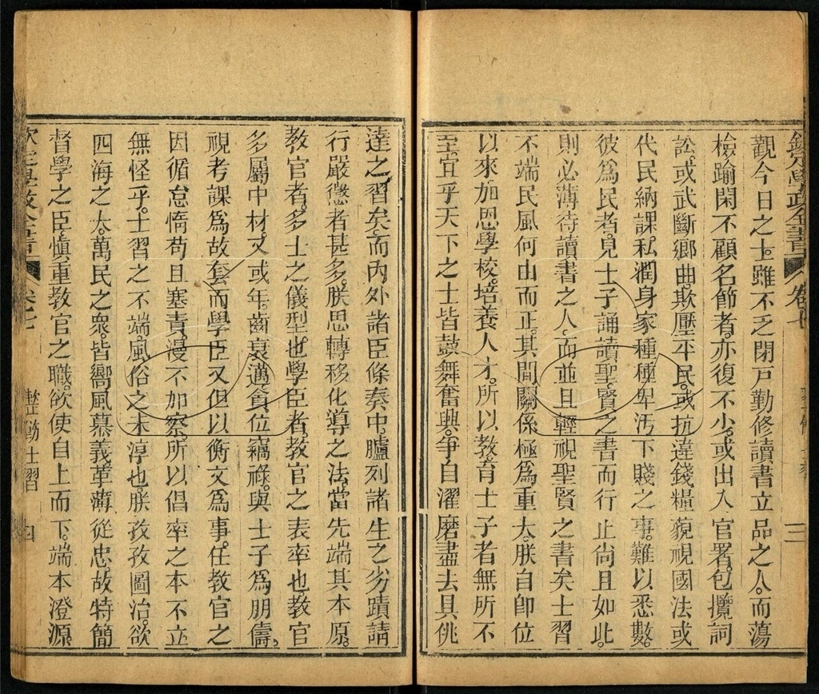 欽定學政全書 卷七 整飭士習 三
觀今日之士雖不乏閉戶勤修讀書立品之人而蕩
檢踰閑不顧名節者亦復不少或出入官署包攬詞
訟或武斷鄉曲欺壓平民或抗違錢糧藐視國法或
代民納課私潤身家種種卑汚下賤之事難以悉數
彼爲民者見士子誦讀聖賢之書而行止尚且如此
則必薄待讀書之人而並且輕視聖賢之書矣士習
不端民風何由而正其間關係極爲重大朕自卽位
以來加恩學校培養人才所以教育士子者無所不
至宜乎天下之士皆鼓舞奮興爭自濯磨盡去其佻
達之習矣而內外諸臣條奏中臚列諸生之劣蹟請
行嚴懲者甚多朕思轉移化導之法當先端其本原
教官者多士之儀型也學臣者教官之表率也教官
多屬中材又或年齒衰邁貪位竊祿與士子爲朋儔
視考課爲故套而學臣又但以衡文爲事任教官之
因循怠惰苟且塞責漫不加察所以倡率之本不立
無怪乎士習之不端風俗之未淳也朕孜孜圖治欲
四海之大萬民之衆皆嚮風慕義革薄從忠故特簡
督學之臣愼重教官之職欲使自上而下端本澄源
欽定學政全書 卷七 整飭士習 四